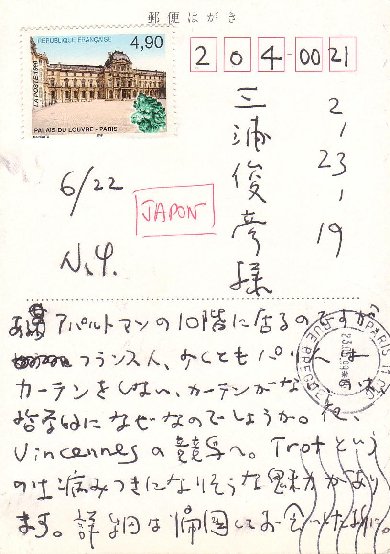 郵便はがき
RÉPUBLIQUE FRANÇAISE
4,90
LA POSTE 1998
PALAIS DU LOUVRE - PARIS
204-0021
2-23-19
三浦俊彦様
6/22
JAPON
N.Y.
アパルトマンの10階に居るのですが
フランス人、少くともパリ
カーテンをしない、カーテンがな
哲学的になぜなのでしょうか。
Vincennesの競馬へ。Trotという
のは病みつきになりそうな魅力があり
ます。詳細は帰国してお会いした